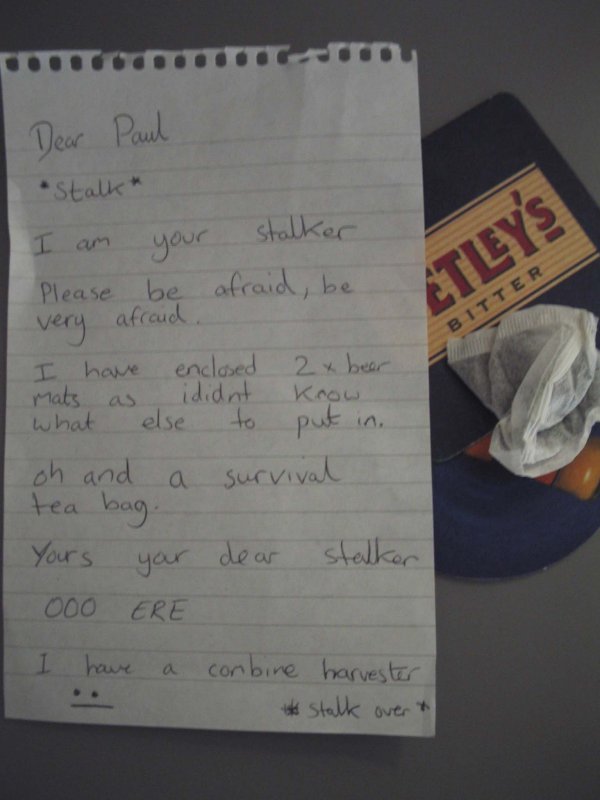 Dear Paul
*Stalk*
I am your stalker
Please be afraid, be
very afraid.
I have enclosed 2 x beer
mats as ididnt know
what else to put in.
oh and a survival
tea bag.
Yours your dear stalker
OOO ERE
I have a conbine harvester
* Stalk over *
ETLEY'S
BITTER